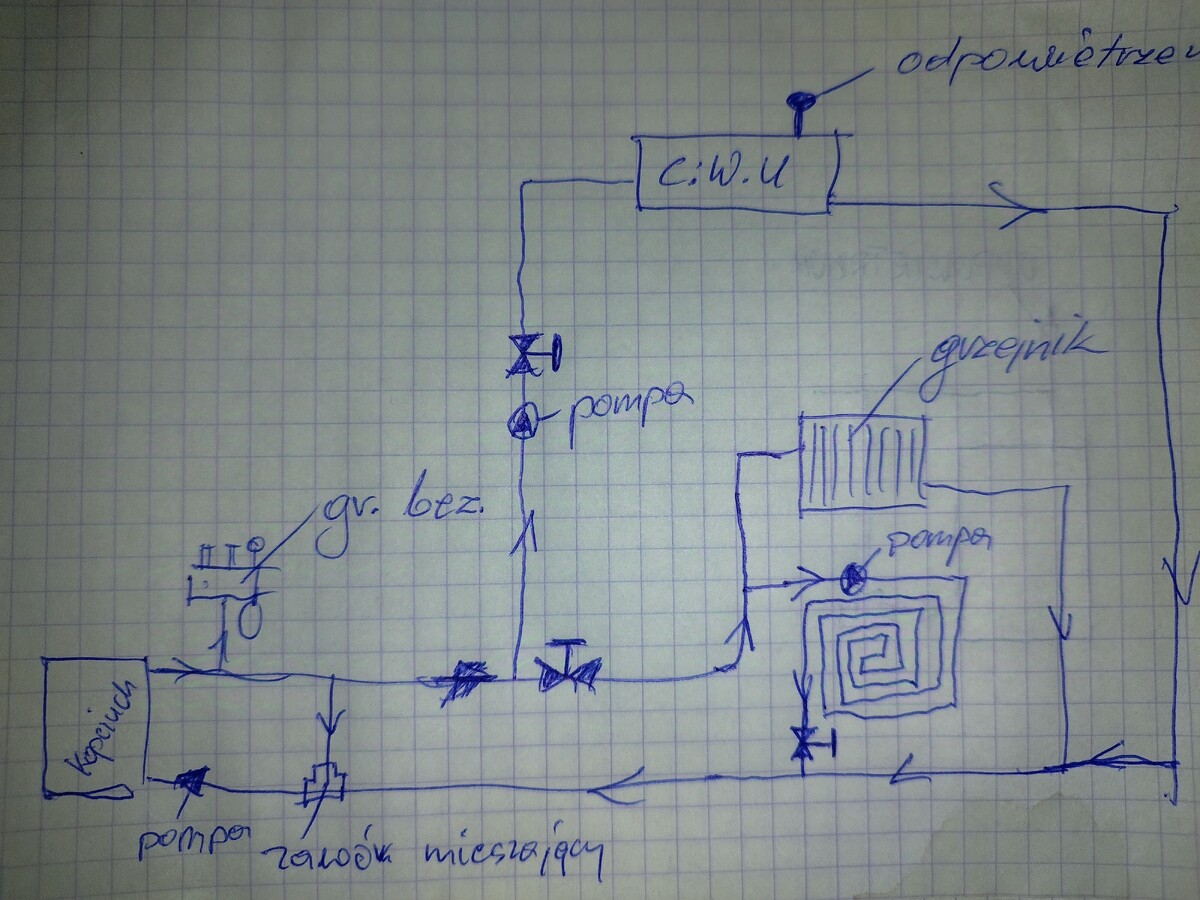 odpowietrzen
C.W.U
grzejnik
pompa
gr. bez.
pompa
Kopciuch
pompa
zawór mieszający